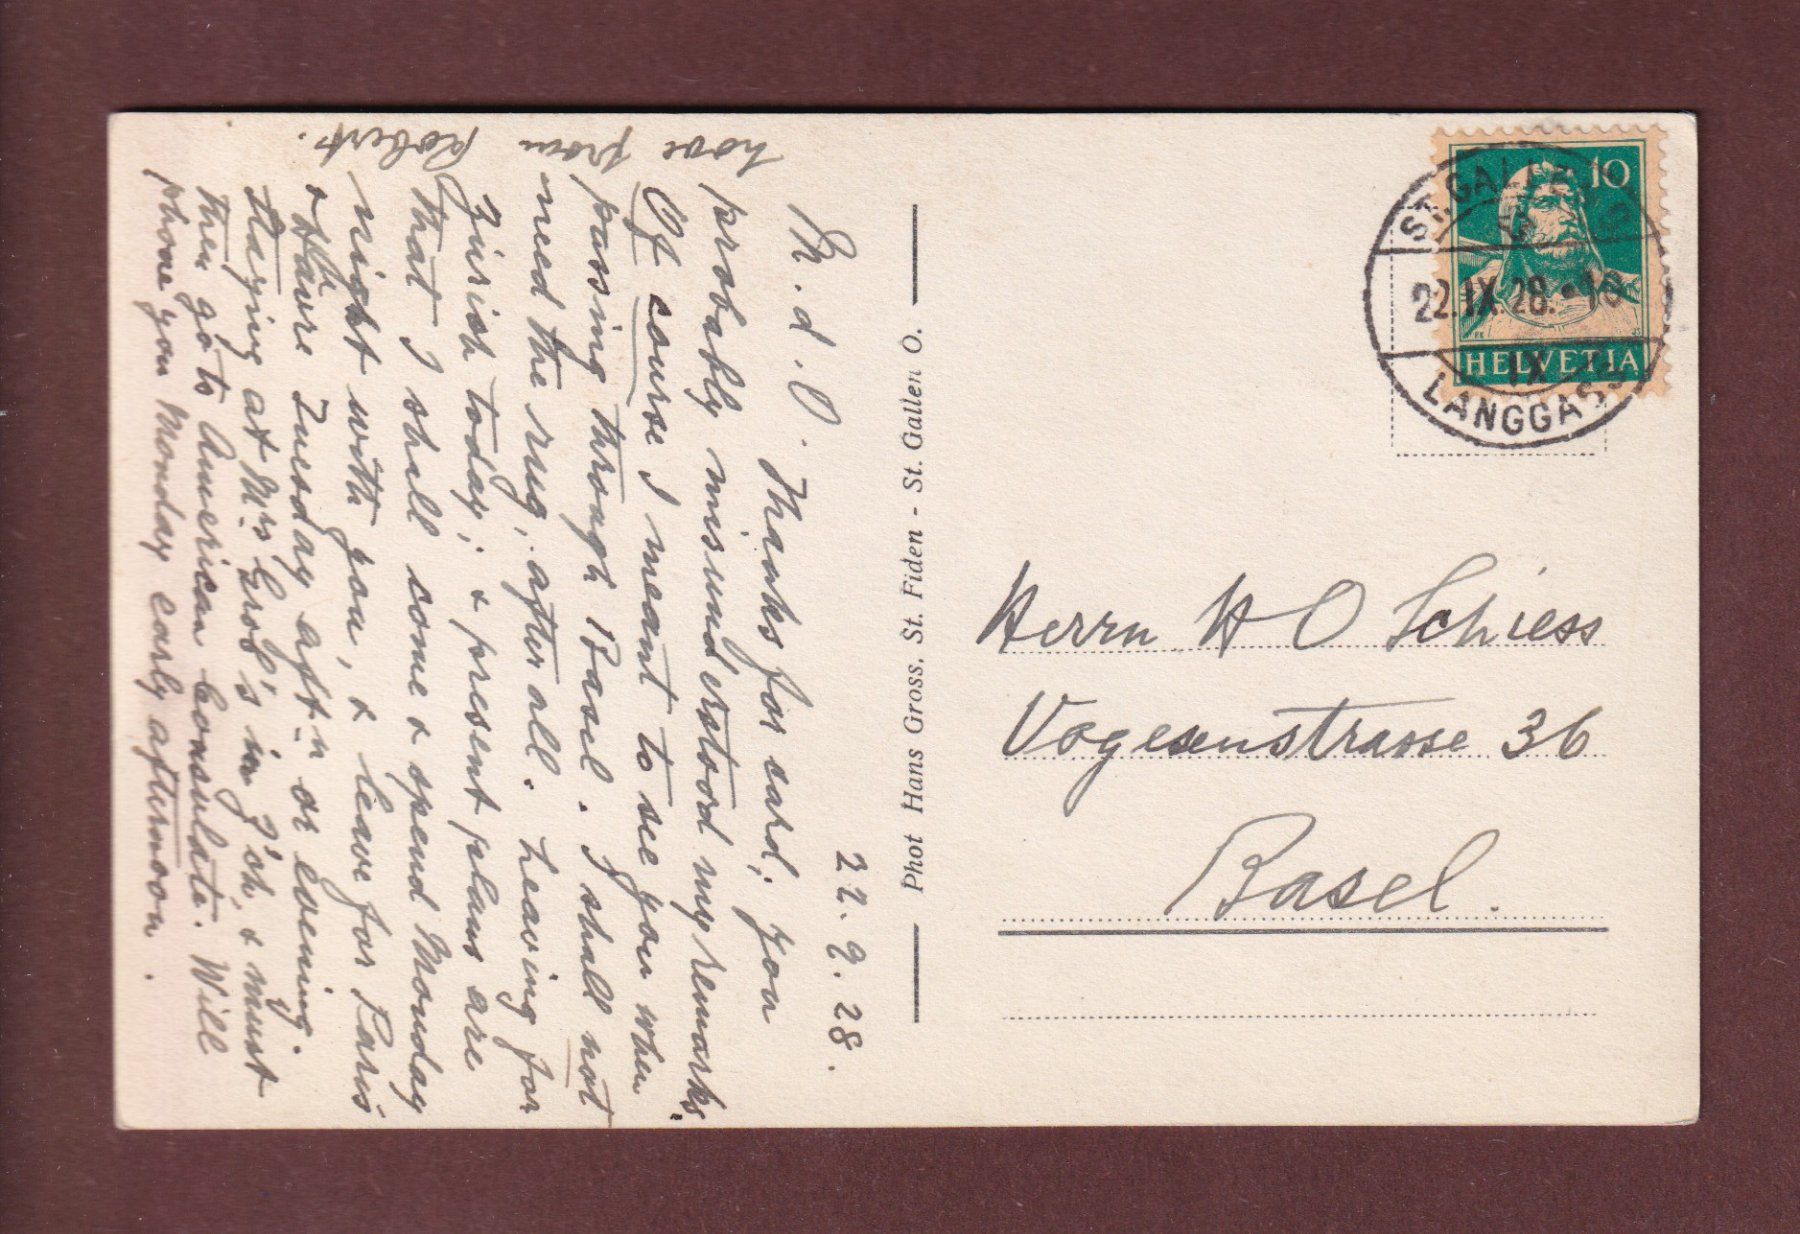 22.9.28.
M.d.O. Thanks for card; you
probably misunderstood my remarks.
Of course I meant to see you when
passing through Basel. I shall not
need the rug, after all. Leaving for
Zürich today; & present plans are
that I shall come & spend Monday
night with you, & leave for Paris
& Hâvre Tuesday aftn or evening.
Staying at Mrs Grob's in Z'ch, & must
then go to American Consulate. Will
phone you Monday early afternoon.
Love from Robert.
Phot Hans Gross. St. Fiden - St. Gallen O.
10
HELVETIA
ST. GALLEN
22.IX.28.
LANGGASS
Herrn H O Schiess
Vogesenstrasse 36
Basel.